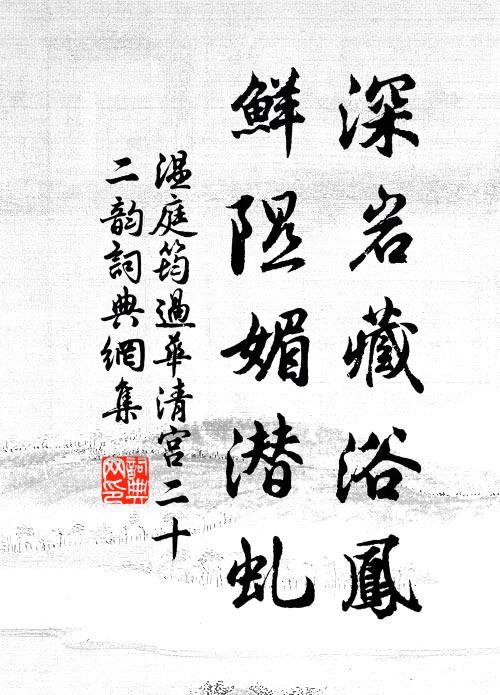 深岩藏浴鳳
鮮隰媚潛虬
温庭筠過華清宮二十
二韵詞典網集
詞典
网印